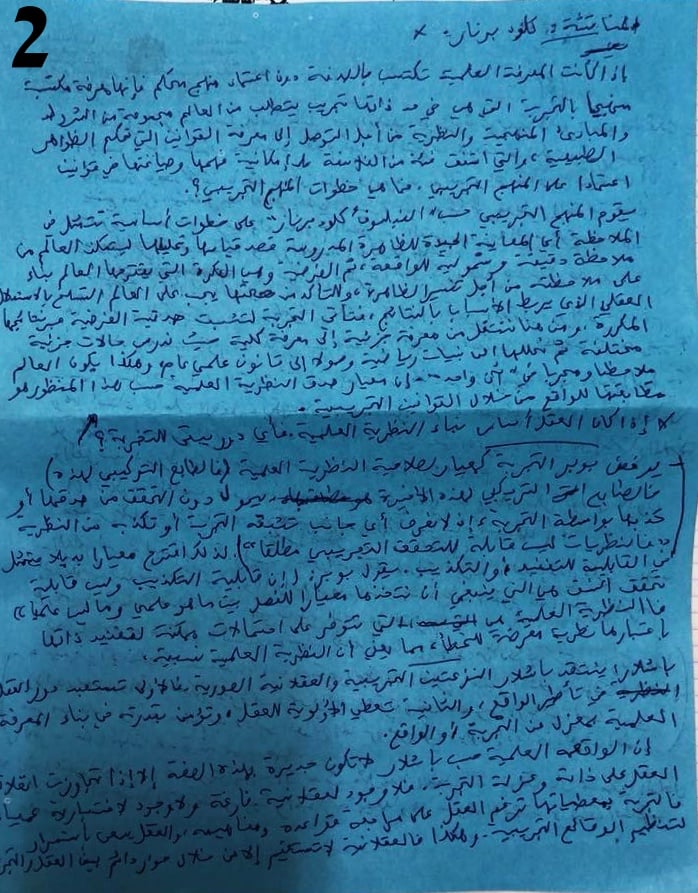 2
المناقشة: كلود برنار: ×
إذا كانت المعرفة العلمية تكتسب بالصدفة دون اعتماد منهج محكم فإنها معرفة مكتسبة
بالتجربة التي هي في حد ذاتها تجريب يتطلب من العالم مجموعة من الشروط
والمبادئ المنهجية والنظرية من أجل التوصل إلى معرفة القوانين التي تحكم الظواهر
الطبيعية، والتي من الفلاسفة على إمكانية فهمها وصياغتها في قوانين
اعتمادا على المنهج التجريبي. فما هي خطوات المنهج التجريبي؟.
يقوم المنهج التجريبي حسب الفيلسوف "كلود برنار" على خطوات أساسية تتمثل في
الملاحظة أي المعاينة الجيدة للظاهرة المدروسة قصد قياسها وتحليلها ليتمكن العالم من
ملاحظة دقيقة وشمولية للواقعة، ثم الفرضية وهي الفكرة التي يقترحها العالم بناء
على ملاحظته من أجل تفسير الظاهرة، وللتأكد من صحتها يجب على العالم التسلح بالاستدلال
العقلي الذي يربط الأسباب بالنتائج، فتأتي التجربة لتثبت صدقية الفرضية
المكررة، ومن هنا ننتقل من معرفة جزئية إلى معرفة كلية حيث ندرس حالات جزئية
مختلفة ثم نحللها إلى بنيات رياضية وصولا إلى قانون علمي عام، وهكذا يكون العالم
ملاحظا ومجربا في "آن واحد". إن معيار صدق النظرية العلمية حسب هذا المنظور هو
مطابقتها للواقع من خلال القوانين التجريبية.
إذا كان العقل أساس بناء النظرية العلمية. فأي دور يبقى للتجربة؟
- يرفض بوبر التجربة كمعيار لصلاحية النظرية العلمية (فالطابع التركيبي لهذه)
فالطابع التركيبي لهذه الأخيرة يحول دون التحقق من صدقها أو
كذبها بواسطة التجربة، إذ لا نعرف أي جانب تثبته التجربة أو تكذبه من النظرية
"فالنظريات ليست قابلة للتحقق التجريبي مطلقا". لذلك اقترح معيارا بديلا يتمثل
في القابلية للتفنيد أو التكذيب. يقول بوبر: "إن قابلية التكذيب وليس قابلية
تحقق النسق هي التي ينبغي أن نتخذها معيارا للفصل بين ما هو علمي وما ليس علميا"
فالنظرية العلمية هي التي تتوفر على احتمالات ممكنة لتفنيد ذاتها
باعتبارها نظرية معرضة للخطأ، مما يعني أن النظرية العلمية نسبية.
باشلار: ينتقد باشلار النزعتين التجريبية والعقلانية الصورية. فالأولى تستبعد دور العقل
في تأطير الواقع، والثانية تعطي الأولوية للعقل، وتؤمن بقدرته في بناء المعرفة
العلمية بمعزل عن التجربة أو الواقع.
إن الواقعة العلمية حسب باشلار لا تكون جديرة بهذه الصفة إلا إذا تجاوزت انغلاق
العقل على ذاته وعزلة التجربة. فلا وجود لعقلانية فارغة ولا وجود لاختبارية عمياء
فالتجربة بمعطياتها ترغم العقل على مراجعة قواعده ومفاهيمه، والعقل يسعى باستمرار
لتنظيم الوقائع التجريبية. وهكذا فالعقلانية لا تستقيم إلا من خلال حوار دائم بين العقل والتجربة